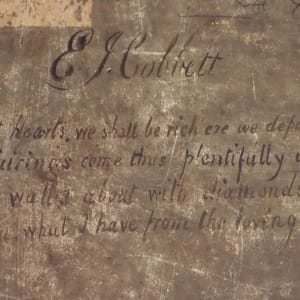 E J. Cobbett
t hearts, we shall be rich ere we depa
airings come thus plentifully
wall'd about with diamond
what I have from the loving